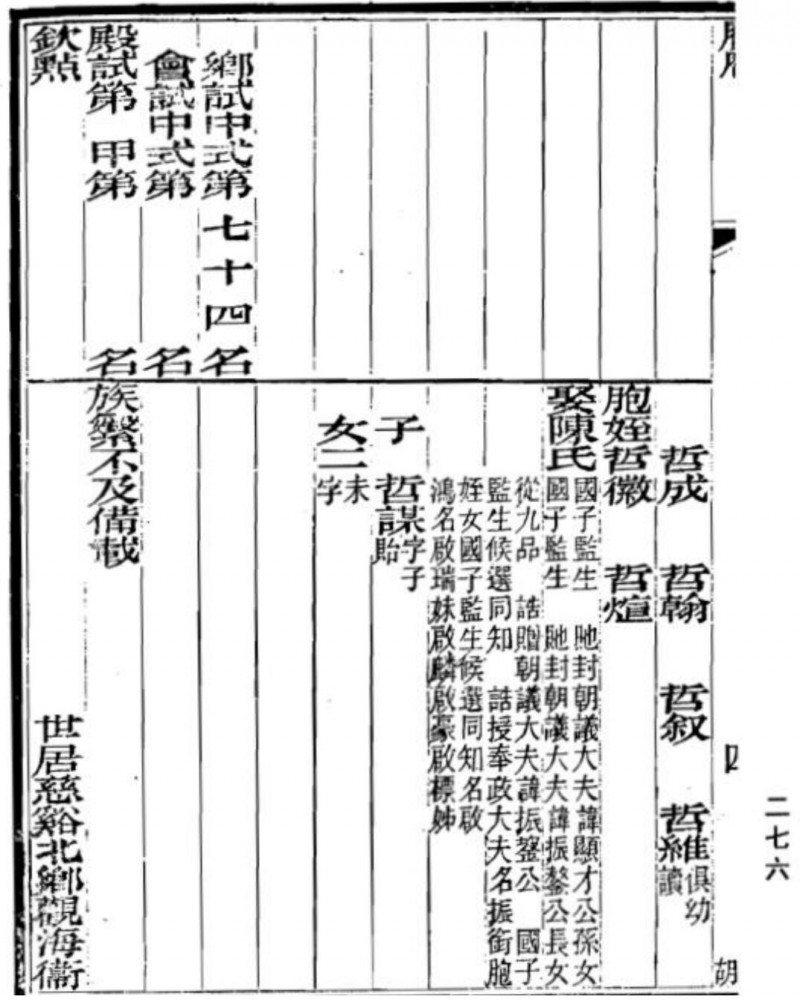 二七六
鄉試中式第七十四名
會試中式第 名
殿試第 甲第 名
欽點
哲成 哲翰 哲叙 哲維俱幼讀
胞姪哲徽 哲煊
娶陳氏國子監生 貤封朝議大夫諱顯才公孫女
國子監生 貤封朝議大夫諱振鏊公長女
從九品 誥贈朝議大夫諱振公 國子
監生候選同知 誥授奉政大夫名振銜胞
姪女國子監生候選同知名啟
鴻名啟瑞妹啟麟啟豪啟標姊
子 哲謀字子貽
女二未字
族繁不及備載
世居慈谿北鄉觀海衛